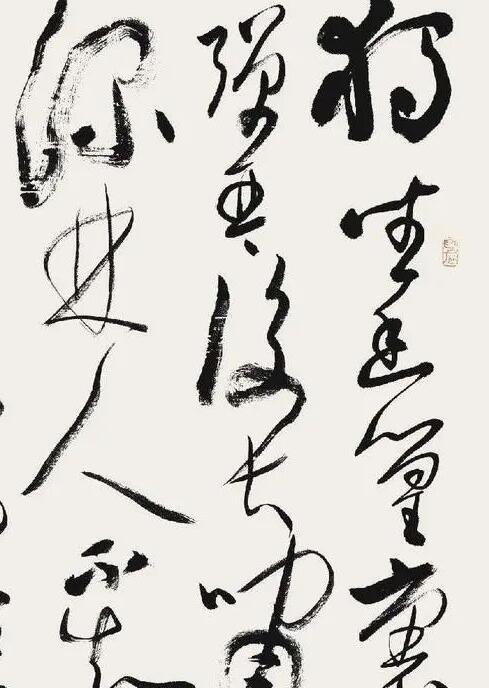 獨坐幽篁裏
彈琴復長嘯
深林人不知